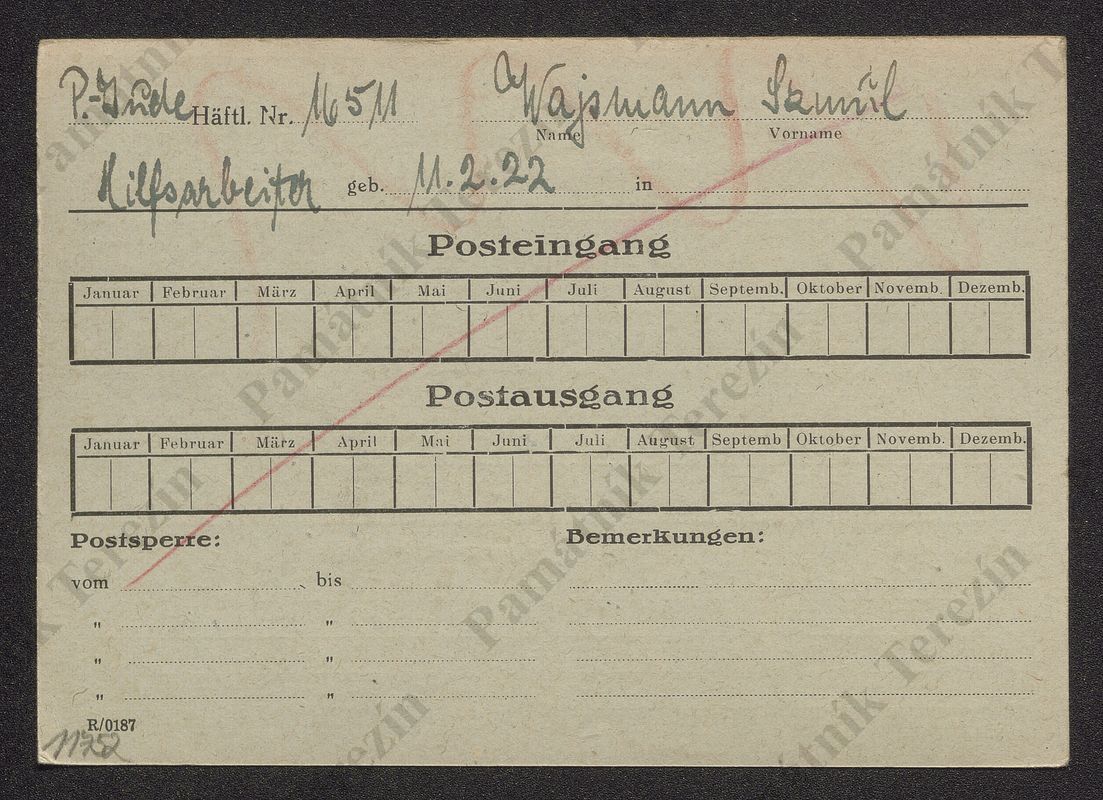 P.-Jude Häftl. Nr. 16511 Wajsmann Szmul
Name Vorname
Hilfsarbeiter geb. 11.2.22 in
Posteingang
Januar Februar März April Mai Juni Juli August Septemb. Oktober Novemb. Dezemb.
Postausgang
Januar Februar März April Mai Juni Juli August Septemb Oktober Novemb. Dezemb.
Postsperre: Bemerkungen:
vom bis
" "
" "
" "
R/0187
11752
Památník Terezín